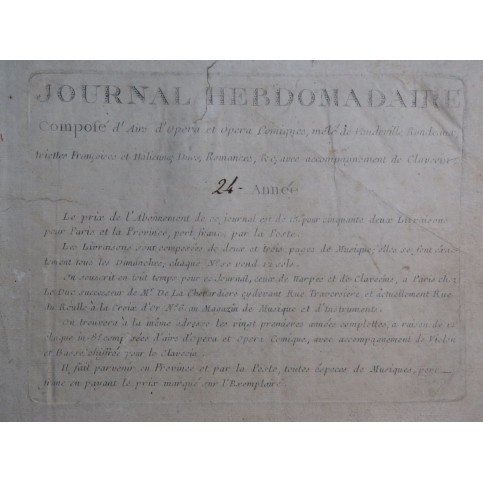 JOURNAL HEBDOMADAIRE
Composé d'Airs d'Opera et Opera Comiques, mêlé de Vaudeville Rondeaux,
Ariettes Françoises et Italienne, Duos, Romances, &c, avec accompagnement de Clavecin
24e Année
Le prix de l'Abonnement de ce journal est de pour cinquante deux Livraisons
pour Paris et la Province, port franc, par la Poste
Les Livraisons sont composées de deux et trois pages de Musique; elles se font
tous les Dimanches; chaque No. se vend 12 sols.
On souscrit en tout temps pour ce Journal, ceux de Harpes et de Clavecins, a Paris chez
Le Duc successeur de Mr. De La Chevardiere cydevant Rue Traversiere et actuellement Rue
du Roulle à la Croix d'Or No. 6 au Magazin de Musique et d'Instruments.
On trouvera à la même adresse les vingt premieres années complettes, a raison de
chaque d'airs d'opera et Opera Comique, avec accompagnement de Violon
et Basse chiffrée pour le Clavecin
Il fait parvenir en Province et par la Poste, toutes éspeces de Musiques, port
franc en payant le prix marqué sur l'Exemplaire